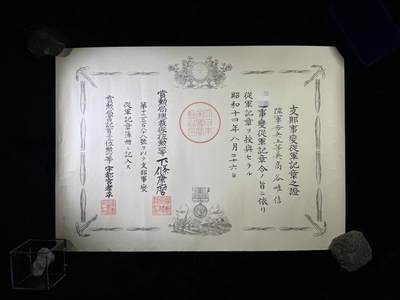 支那事變從軍記章之證
陸軍步兵上等兵高谷唯信
事變從軍記章令ノ旨ニ依リ
從軍記章ヲ授與セラル
昭和十四年八月二十六日
賞勳局總裁從四位勳二等下條康麿
號ヲ以テ支那事變
從軍記章簿册ニ記入ス
賞勳局書記官